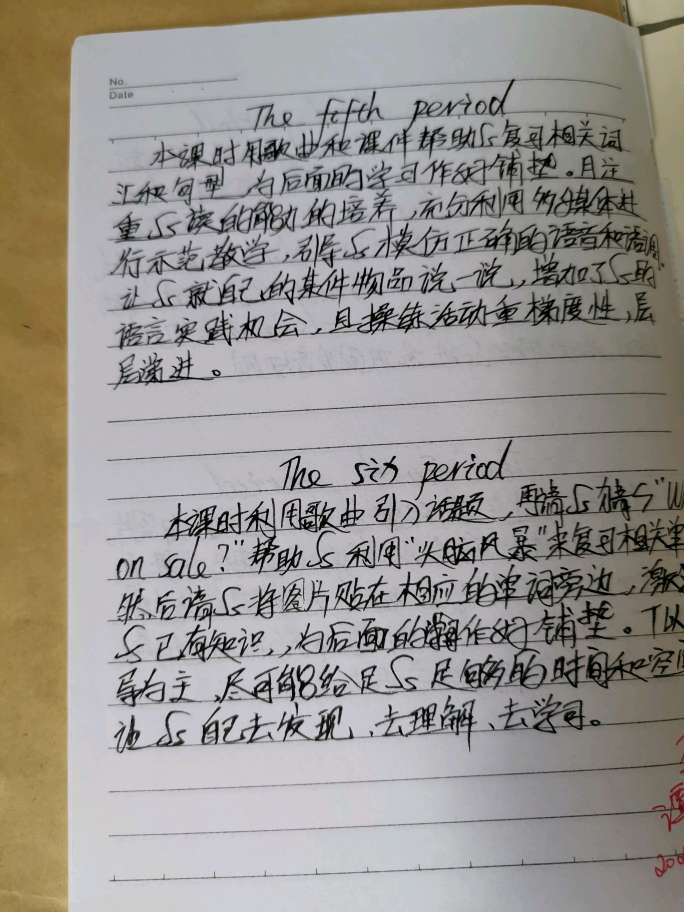 No.
Date
The fifth period
本课时用歌曲和课件帮助Ss复习相关词
汇和句型,为后面的学习作好铺垫。且注
重Ss读的能力的培养,充分利用多媒体进
行示范教学,引导Ss模仿正确的语音和语调。
让Ss就自己的某件物品说一说,增加了Ss的
语言实践机会,且操练活动重梯度性,层
层递进。
The six period
本课时利用歌曲引入话题,再请Ss猜今"W
on sale?"帮助Ss利用"头脑风暴"来复习相关单
然后请Ss将图片贴在相应的单词旁边,激
Ss已有知识,为后面的作好铺垫。T以
导为主,尽可能给足Ss足够的时间和空间
让Ss自己去发现、去理解、去学习。